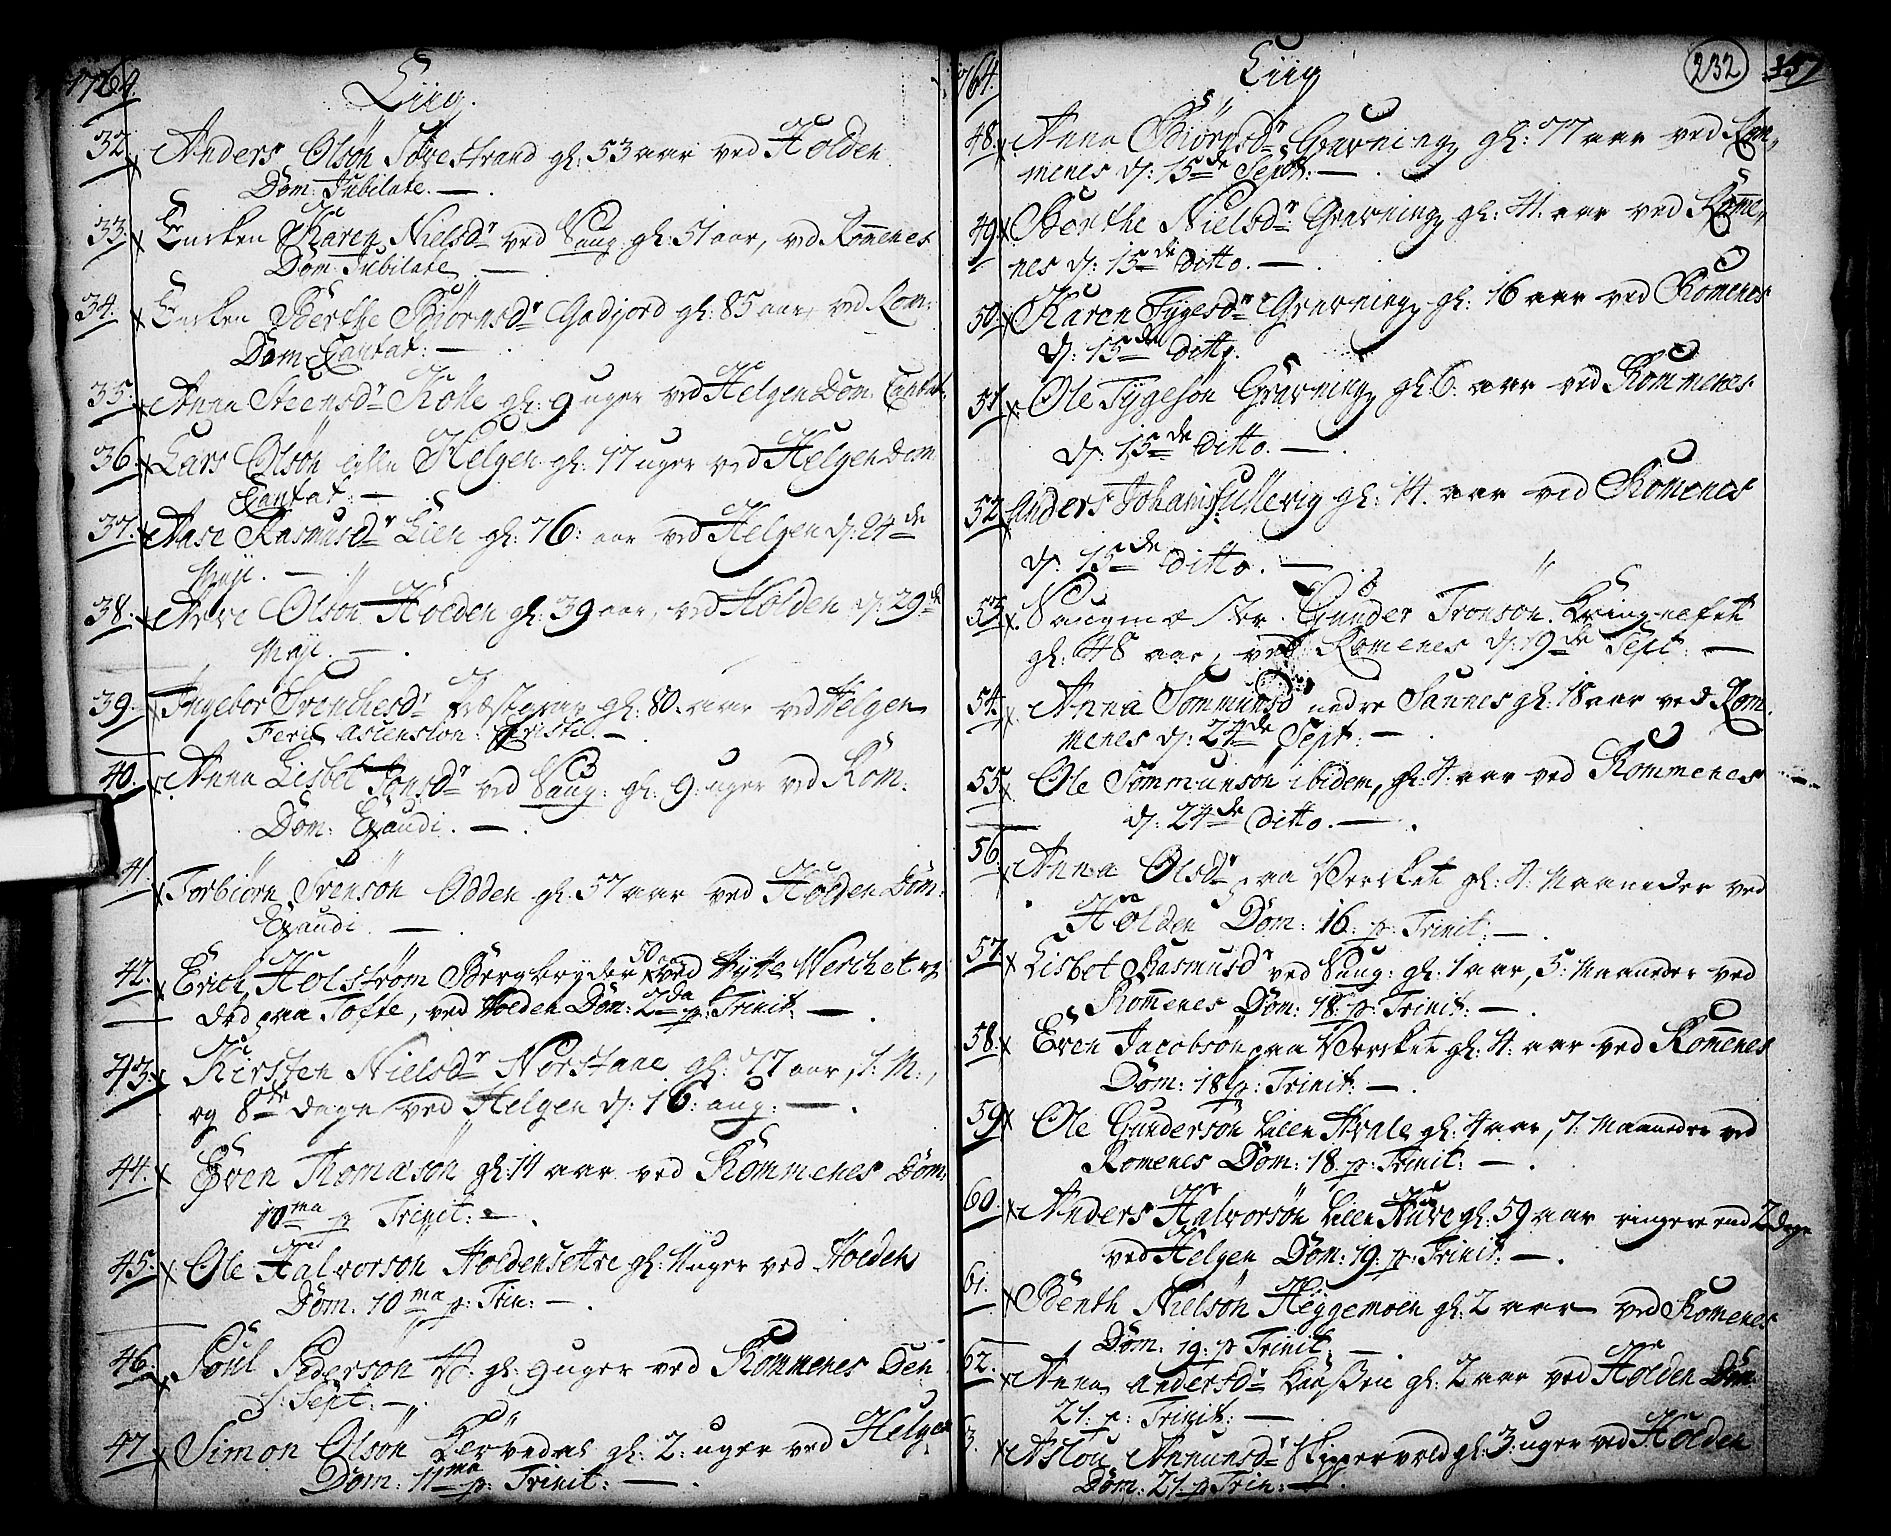 1764.
Liig.
32. Anders Olsøn Torestrand gl: 53 aar ved Holden
Dom: Jubilate. —.
33. Encken Karen Nielsdr ved Saug: gl: 51 aar, vd Romenes
Dom: Jubilate —
34. Encken Berthe Biørnsdr Gadjord gl: 85 aar, vd Rom:
Dom Cantat: —
35. Anna Steensdr Kolle gl: 9 uger vd Helgen Dom. Cantat:
36. Lars Olsøn Helgen gl: 17 uger vd Helgen Dom
Cantat: —
37. Aase Rasmusdr Lien gl: 76: aar vd Helgen d: 24de
Maji. —
38. Arve Olsøn Holden gl: 39 aar, vd Holden d: 29de
Maji. —.
39. Ingebor Svenchesdr gl: 80. aar vd Helgen
Feria ascension: Christi. —
40. Anna Lisbet Jonsdr vd Saug: gl: 9: uger vd Rom:
Dom: Exaudi. —.
41. Torbiørn Svensøn Odden gl: 57 aar ved Holden Dom:
Exaudi. —
42. Erich Holstrøm Bergbryder ved Hytte Verchet
50
død paa Tofte, ved Holden Dom: 2da p: Trinit: —.
43. Kirsten Nielsdr Norstane gl: 77 aar, 1: M:,
og 8te dage ved Helgen d: 16: aug: —.
44. Even Thomæsøn gl: 14 aar ved Rommenes Dom:
10ma p Trinit: —.
45. Ole Halvorsøn Holdensettre gl: 11 uger ved Holden
Dom: 10ma p: Trin: —.
46. Poul Pedersøn gl: 9 uger ved Rommenes Den
Sept: —.
47. Simon Olsøn gl: 2: uger ved Helgen
Dom: 11ma p: Trinit: —.
764.
Liig
232
157
48. Anna Biørnsdr Gravning gl: 77 aar ved Rom,
menes d: 15de Sept: —.
49. Berthe Nielsdr Gravning gl: 41. aar ved Rome,
nes d: 15de ditto. —.
50. Karen Tygesdr Gravning gl: 16 aar ved Romenes
d: 15de ditto.
51. Ole Tygesøn Gravning gl: 6. aar ved Rommenes
d: 15de ditto. —.
52. Anders Johans: Ullevig gl: 14. aar ved Romenes
d: 15de ditto. —
53. Saugmæster Gunder Tronsøn.
gl: 48 aar, ved Romenes d: 19de Sept: —
54. Anna Sommunsd nedre Sannes gl: 18 aar ved Rom
menes d: 24de Sept: —
55. Ole Sommunsøn ibidem, gl: 4: aar ved Rommenes
d: 24de ditto. —.
56. Anna Olsdr paa Verrket gl: 4: Maaneder ved
Holden Dom: 16. p: Trinit: —.
57. Lisbet Rasmusdr ved Saug: gl: 1 aar, 5: Maaneder ved
Romenes Dom: 18. p: Trinit: —.
58. Even Jacobsøn paa Verrket gl: 4: aar ved Romenes
Dom: 18 p: Trinit: —.
59. Ole Gundersøn Lien Hvale gl: 4 aar, 7: Maaneder vd
Romenes Dom: 18. p: Trinit: —.
60. Anders Halvorsøn Lien gl: 59 aar ringere end 2 dage
ved Helgen Dom: 19. p: Trinit: —.
61. Benth Nielsøn Heggemoen gl: 2 aar ved Romenes
Dom. 19. p Trinit: —.
62. Anna Andersdr gl: 2 aar ved Holden Dom
21. p: Trinit: —
3. Aslou Annunsdr Skippervold gl: 3: uger vd Holden
Dom: 21. p Trin: —.